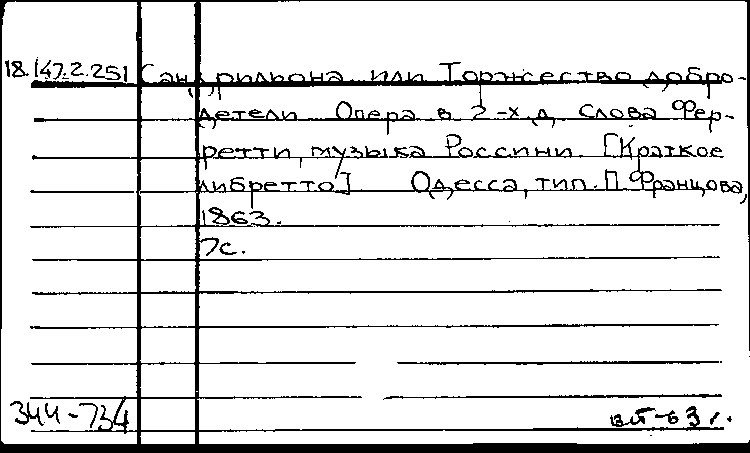 18.147.2.251 Сандрильона или Торжество добро-
детели Опера в 2-х д. Слова Фер-
ретти, музыка Россини. [Краткое
либретто] Одесса, тип. П. Францова,
1863.
7с.
344-734